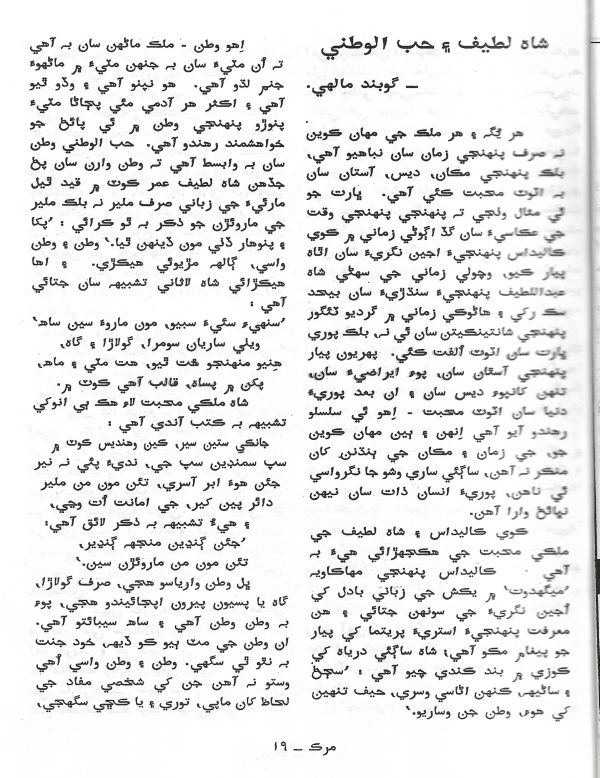 شاھ لطيف ۽ حب الوطني
– گوبند مالهي.
هر يُڳه ۽ هر ملڪ جي مهان ڪوين
نہ صرف پنهنجي زمان سان نباهيو آهي،
بلڪ پنهنجي مڪان، ديس، آستان سان
بہ اٽوٽ محبت ڪئي آهي. ڀارت جو
ئي مثال ونجي تہ پنهنجي پنهنجي وقت
جي عڪاسيءَ سان گڏ اڳوڻي زماني ۾ ڪوي
ڪاليداس پنهنجيءَ اجين نگريءَ سان اٿاھ
پيار ڪيو، وچولي زماني جي سهڻي شاھ
عبداللطيف پنهنجيءَ سنڌڙيءَ سان بيحد
سڪ رکي ۽ هاڻوڪي زماني ۾ گرديو ٽئگور
پنهنجي شانتينڪيتن سان ئي نہ، بلڪ پوري
ڀارت سان اٽوٽ اُلفت ڪئي. پهريون پيار
پنهنجي آستان سان، پوءِ ايراضيءَ سان،
تنهن کانپوءِ ديس سان ۽ ان بعد پوريءَ
دنيا سان اٽوٽ محبت - اِهو ئي سلسلو
رهندو آيو آهي اِنهن ۽ ٻين مهان ڪوين
جو، جي زمان ۽ مڪان جي ٻنڌڻن کان
منڪر نہ آهن، ساڳئي ساري وشو جا نگرواسي
ئي ناهن، پوريءَ انسان ذات سان نيهن
نڀائڻ وارا آهن.
ڪوي ڪاليداس ۽ شاھ لطيف جي
ملڪي محبت جي هڪجهڙائي هيءَ بہ
آهي ڪاليداس پنهنجي مهاڪاويہ
‘ميگهدوت’ ۾ يڪش جي زباني بادل کي
اُجين نگريءَ جي سونهن جتائي ۽ هن
معرفت پنهنجيءَ استريءَ پريتما کي پيار
جو پيغام مڪو آهي، شاھ ساڳئي درياھ کي
ڪوزي ۾ بند ڪندي چيو آهي : ‘سڄڻ
۽ ساڻيهہ، ڪنهن اڻاسي وسري، حيف تنهين
کي هوءِ، وطن جن وساريو.’
اِهو وطن - ملڪ ماڻهن سان بہ آهي
تہ اُن مٽيءَ سان بہ جنهن مٽيءَ ۾ ماڻهوءَ
جنم لڌو آهي. هو نپنو آهي ۽ وڏو ٿيو
آهي ۽ اڪثر هر آدمي مئي پڄاڻا مٽيءَ
پنوڙو پنهنجي وطن ۾ ئي پائڻ جو
خواهشمند رهندو آهي. حب الوطني وطن
سان بہ وابسط آهي تہ وطن وارن سان پڻ
جڏهن شاھ لطيف عمر ڪوٽ ۾ قيد ٿيل
مارئيءَ جي زباني صرف ملير نہ بلڪ ملير
جي ماروئڙن جو ذڪر بہ ٿو ڪرائي : ‘پکا
۽ پنوهار ڏٺي مون ڏينهن ٿيا.’ وطن ۽ وطن
واسي، ڳالهہ مڙيوئي هيڪڙي. ۽ اها
هيڪڙائي شاھ لاثاني تشبيهہ سان جتائي
آهي :
‘سنهيءَ سئيءَ سبيو، مون ماروءَ سين ساهہ’
ويٺي ساريان سومرا، گولاڙا ۽ گاھ،
هنيو منهنجو هُت ٿيو، هت مٽي ۽ ماهہ،
پکن ۾ پساھ، قالب آهي ڪوٽ ۾.
شاھ ملڪي محبت لاءِ هڪ ٻي انوکي
تشبيهہ بہ ڪتب آندي آهي :
جانڪي ستين سير، ڪين وهنديس ڪوٽ ۾
سپ سمنڊين سپ جي، نديءَ پئي نہ نير
جئن هوءَ ابر آسري، تئن مون من ملير
دائر پين ڪير، جي امانت اُت وڃي،
۽ هيءُ تشبيهہ بہ ذڪر لائق آهي:
‘جئن ڳنڍين منجهہ ڳنڍير،
تئن مون من ماروئڙن سين.’
ڀل وطن وارياسو هجي، صرف گولاڙا،
گاھ يا پسيون پيرون اپڄائيندو هجي، پوءِ
بہ وطن وطن آهي ۽ ساھ سيبائتو آهي.
ان وطن جي مٽ ٻيو ڪو ڏيهہ، خود جنت
بہ نٿو ٿي سگهي. وطن ۽ وطن واسي اُهي
وستو نہ آهن جن کي شخصي مفاد جي
لحاظ کان ماپي، توري ۽ يا کڻي سگهجي،
مرڪ – ١٩